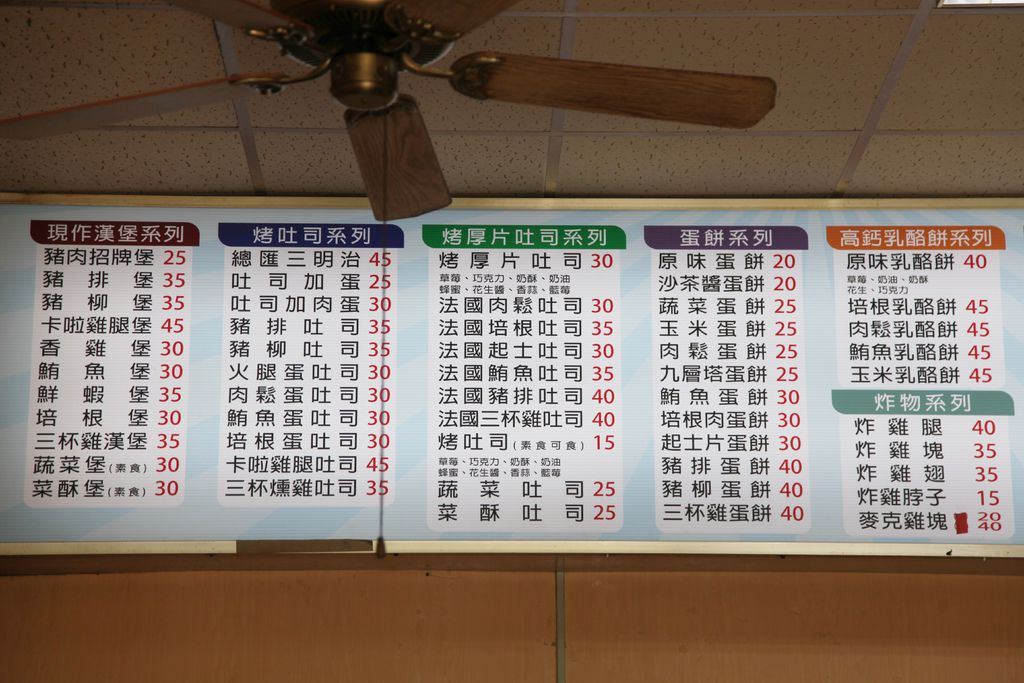 現作漢堡系列
豬肉招牌堡 25
豬排堡 35
豬柳堡 35
卡啦雞腿堡 45
香雞堡 30
鮪魚堡 30
鮮蝦堡 35
培根堡 30
三杯雞漢堡 35
蔬菜堡(素食) 30
菜酥堡(素食) 30
烤吐司系列
總匯三明治 45
吐司加蛋 25
吐司加肉蛋 30
豬排吐司 35
豬柳吐司 35
火腿蛋吐司 30
肉鬆蛋吐司 30
鮪魚蛋吐司 30
培根蛋吐司 30
卡啦雞腿吐司 45
三杯燻雞吐司 35
烤厚片吐司系列
烤厚片吐司 30
草莓、巧克力、奶酥、奶油
蜂蜜、花生醬、香蒜、藍莓
法國肉鬆吐司 30
法國培根吐司 35
法國起士吐司 30
法國鮪魚吐司 35
法國豬排吐司 40
法國三杯雞吐司 40
烤吐司(素食可食) 15
草莓、巧克力、奶酥、奶油
蜂蜜、花生醬、香蒜、藍莓
蔬菜吐司 25
菜酥吐司 25
蛋餅系列
原味蛋餅 20
沙茶醬蛋餅 20
蔬菜蛋餅 25
玉米蛋餅 25
肉鬆蛋餅 25
九層塔蛋餅 25
鮪魚蛋餅 30
培根肉蛋餅 30
起士片蛋餅 30
豬排蛋餅 40
豬柳蛋餅 40
三杯雞蛋餅 40
高鈣乳酪餅系列
原味乳酪餅 40
草莓、奶油、奶酥
花生、巧克力
培根乳酪餅 45
肉鬆乳酪餅 45
鮪魚乳酪餅 45
玉米乳酪餅 45
炸物系列
炸雞腿 40
炸雞塊 35
炸雞翅 35
炸雞脖子 15
麥克雞塊 20
40